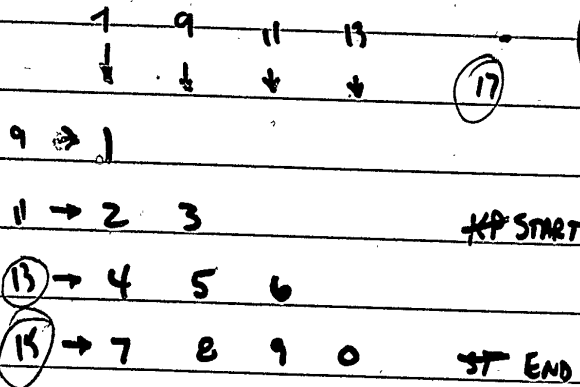 7 9 11 13
↓ ↓ ↓ ↓ 17
9 → 1
11 → 2 3 KP START
13 → 4 5 6
15 → 7 8 9 0 ST END